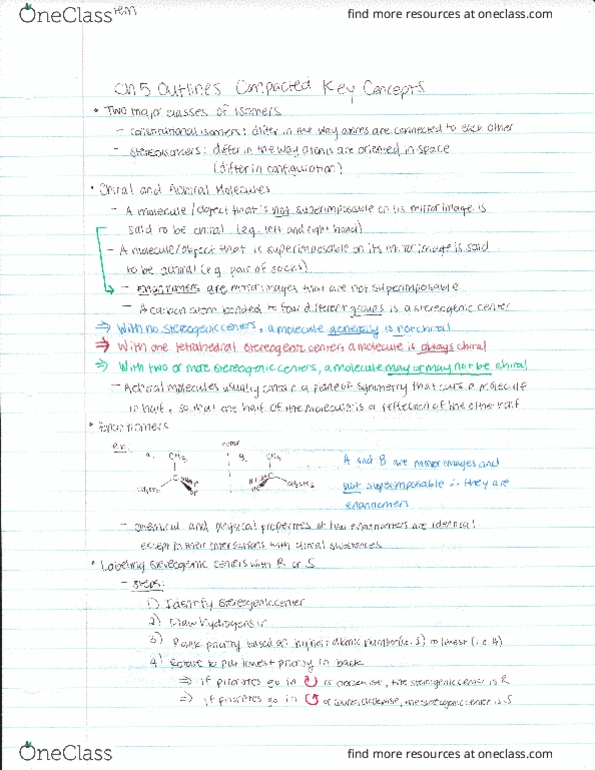 OneClass
find more resources at oneclass.com
Ch 5 Outlines Compacted Key Concepts
• Two major classes of isomers
- constitutional isomers: differ in the way atoms are connected to each other
- stereoisomers: differ in the way atoms are oriented in space
(differ in configuration)
• Chiral and Achiral Molecules
- A molecule/object that's not superimposable on its mirror image is
said to be chiral (e.g. left and right hand)
- A molecule/object that is superimposable on its mirror image is said
to be achiral (e.g. pair of socks)
- enantiomers are mirror images that are not superimposable
- A carbon atom bonded to four different groups is a stereogenic center
⇒ With no stereogenic centers, a molecule generally is not chiral
⇒ With one tetrahedral stereogenic center, a molecule is always chiral
⇒ With two or more stereogenic centers, a molecule may or may not be chiral
- Achiral molecules usually contain a plane of symmetry that cuts a molecule
in half, so that one half of the molecule is a reflection of the other half
• Enantiomers
ex.
CH3
B.
CH3
A and B are mirror images and
not superimposable ∴ they are
enantiomers
- chemical and physical properties of two enantiomers are identical
except in their interactions with chiral substances
• Labeling stereogenic centers with R or S
- Steps:
1) Identify stereogenic center
2) Draw hydrogens in
3) Rank priority based on highest atomic number (i.e. S) to lowest (i.e. H)
4) Rotate to put lowest priority in back
⇒ if priorities go in ↻ or clockwise, the stereogenic center is R
⇒ if priorities go in ↺ or counterclockwise, the stereogenic center is S
OneClass
find more resources at oneclass.com